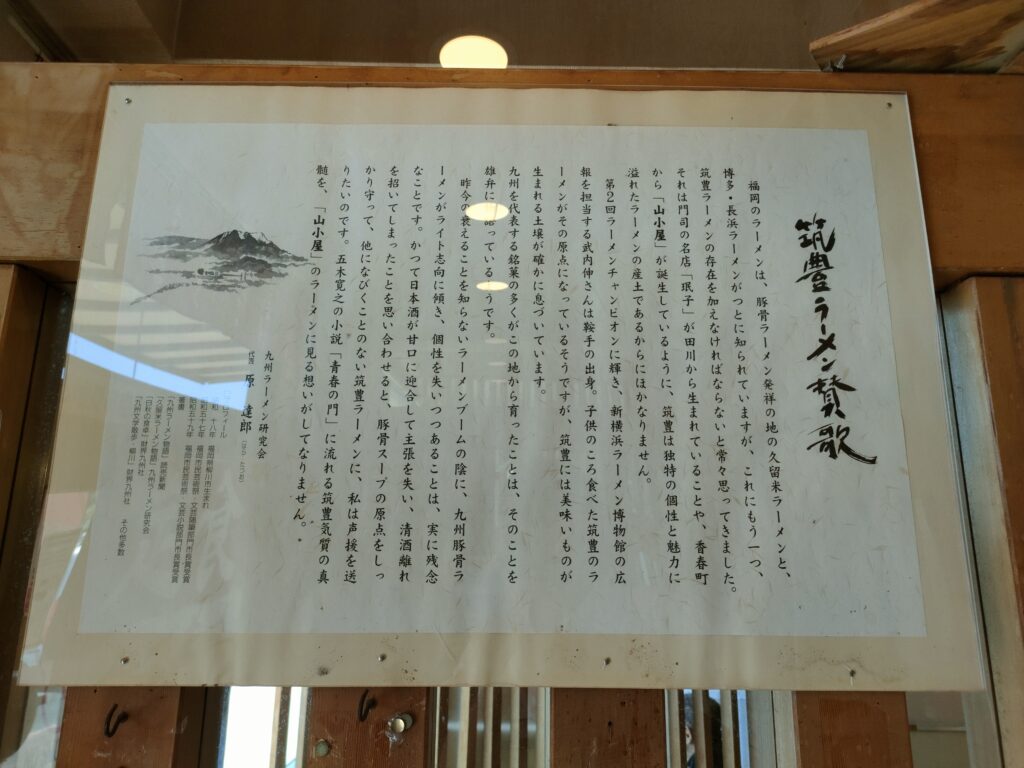 筑豊ラーメン賛歌
福岡のラーメンは、豚骨ラーメン発祥の地の久留米ラーメンと、
博多・長浜ラーメンがつとに知られていますが、これにもう一つ、
筑豊ラーメンの存在を加えなければならないと常々思ってきました。
それは門司の名店「珉子」が田川から生まれていることや、香春町
から「山小屋」が誕生しているように、筑豊は独特の個性と魅力に
溢れたラーメンの産土であるからにほかなりません。
第2回ラーメンチャンピオンに輝き、新横浜ラーメン博物館の広
報を担当する武内伸さんは鞍手の出身。子供のころ食べた筑豊のラ
ーメンがその原点になっているそうですが、筑豊には美味いものが
生まれる土壌が確かに息づいています。
九州を代表する銘菓の多くがこの地から育ったことは、そのことを
雄弁に っている うです。
昨今の衰えることを知らないラーメンブームの陰に、九州豚骨ラ
ーメンがライト志向に傾き、個性を失いつつあることは、実に残念
なことです。かつて日本酒が甘口に迎合して主張を失い、清酒離れ
を招いてしまったことを思い合わせると、豚骨スープの原点をしっ
かり守って、他になびくことのない筑豊ラーメンに、私は声援を送
りたいのです。五木寛之の小説「青春の門」に流れる筑豊気質の真
髄を、「山小屋」のラーメンに見る想いがしてなりません。
九州ラーメン研究会
代表 原 達郎
フィール
十八年 福岡県柳川市生まれ
昭和五十七年 福岡市民芸術祭 文芸随筆部門市長賞受賞
昭和五十九年 福岡市民芸術祭 文芸小説部門市長賞受賞
著書
「九州ラーメン物語」 読売新聞
「久留米ラーメン物語」 九州ラーメン研究会
「白秋の食卓」 財界九州社
「九州文学散歩・柳川」 財界九州社 その他多数